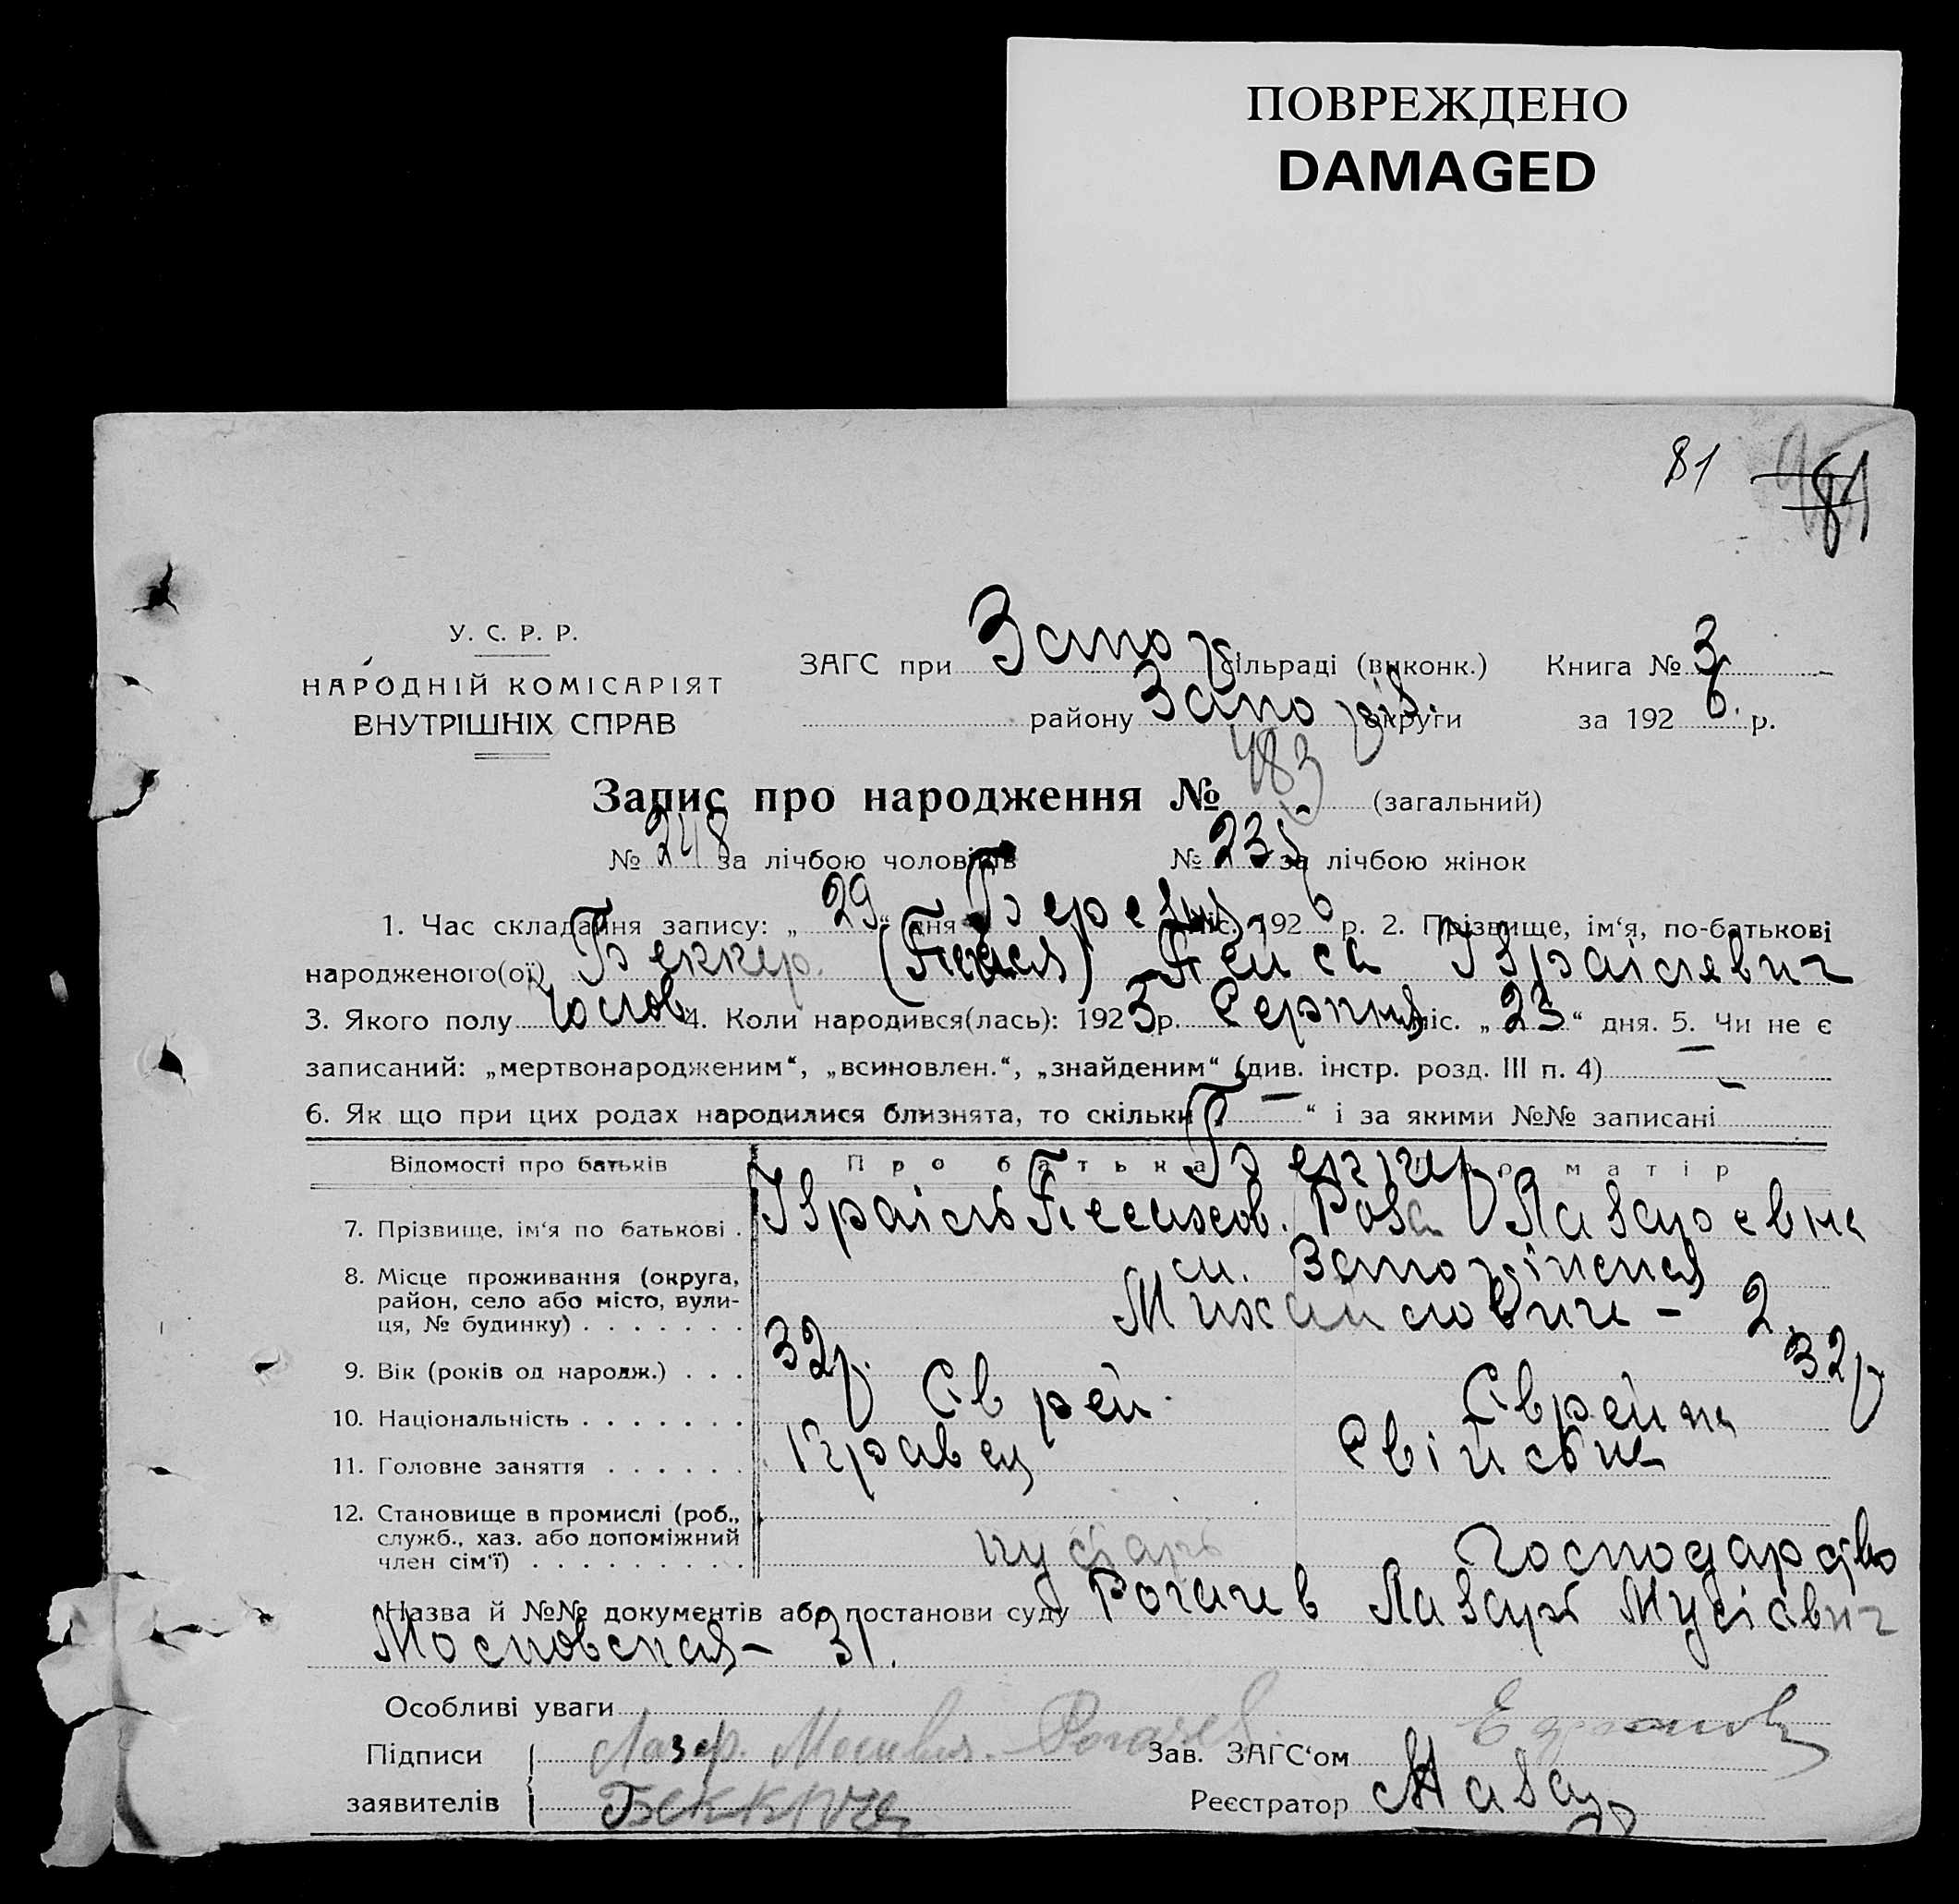 ПОВРЕЖДЕНО
DAMAGED
81 81
У. С. Р. Р.
НАРОДНІЙ КОМІСАРІЯТ
ВНУТРІШНІХ СПРАВ
ЗАГС при Запор сільраді (виконк.) Книга № 3
району Запоріз. округи за 1926. р.
Запис про народження № 483 (загальний)
№ 248 за лічбою чоловіків № 235 за лічбою жінок
1. Час складання запису: „29“ дня Березня міс. 1926 р. 2. Прізвище, ім‘я, по-батькові
народженого(ої) Беккер. Ізраілевич
3. Якого полу Чолов. 4. Коли народився(лась): 1923 р. Серпня міс. „23“ дня. 5. Чи не є
записаний: „мертвонародженим“, „всиновлен.“, „знайденим“ (див. інстр. розд. III п. 4) —
6. Як що при цих родах народилися близнята, то скільки „—“ і за якими №№ записані
Відомості про батьків Про батька Про матір
Беккер
7. Прізвище, ім‘я по батькові . Ізраіль Роза Лазаревна
8. Місце проживання (округа, район, село або місто, вули- ця, № будинку) . . . . . . . м. Запоріжжя
Михайловича - 2.
9. Вік (років од народж.) . . . 32р. 32р
10. Національність . . . . . . . Єврей. Єврейка
11. Головне заняття . . . . . . Кравец Свійське
12. Становище в промислі (роб., служб., хаз. або допоміжний член сім‘ї) . . . . . . . . . кустарь господарство
Назва й №№ документів або постанови суду Рогачев Лазарь Мусієвич
Московская - 31.
Особливі уваги
Підписи Лазер. Рогачев. Зав. ЗАГС‘ом
заявителів Беккер Реєстратор